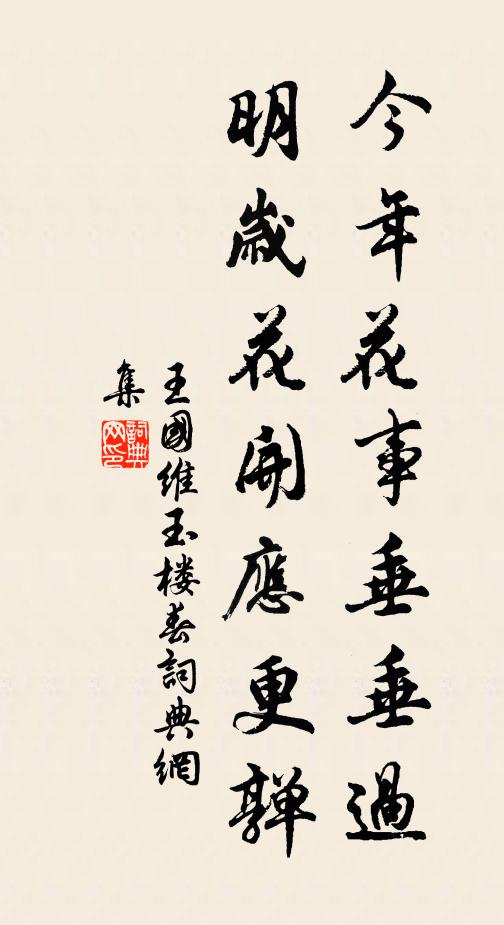 今年花事垂垂過
明歲花開應更嚲
王國維玉楼春詞典網
集
詞典网印